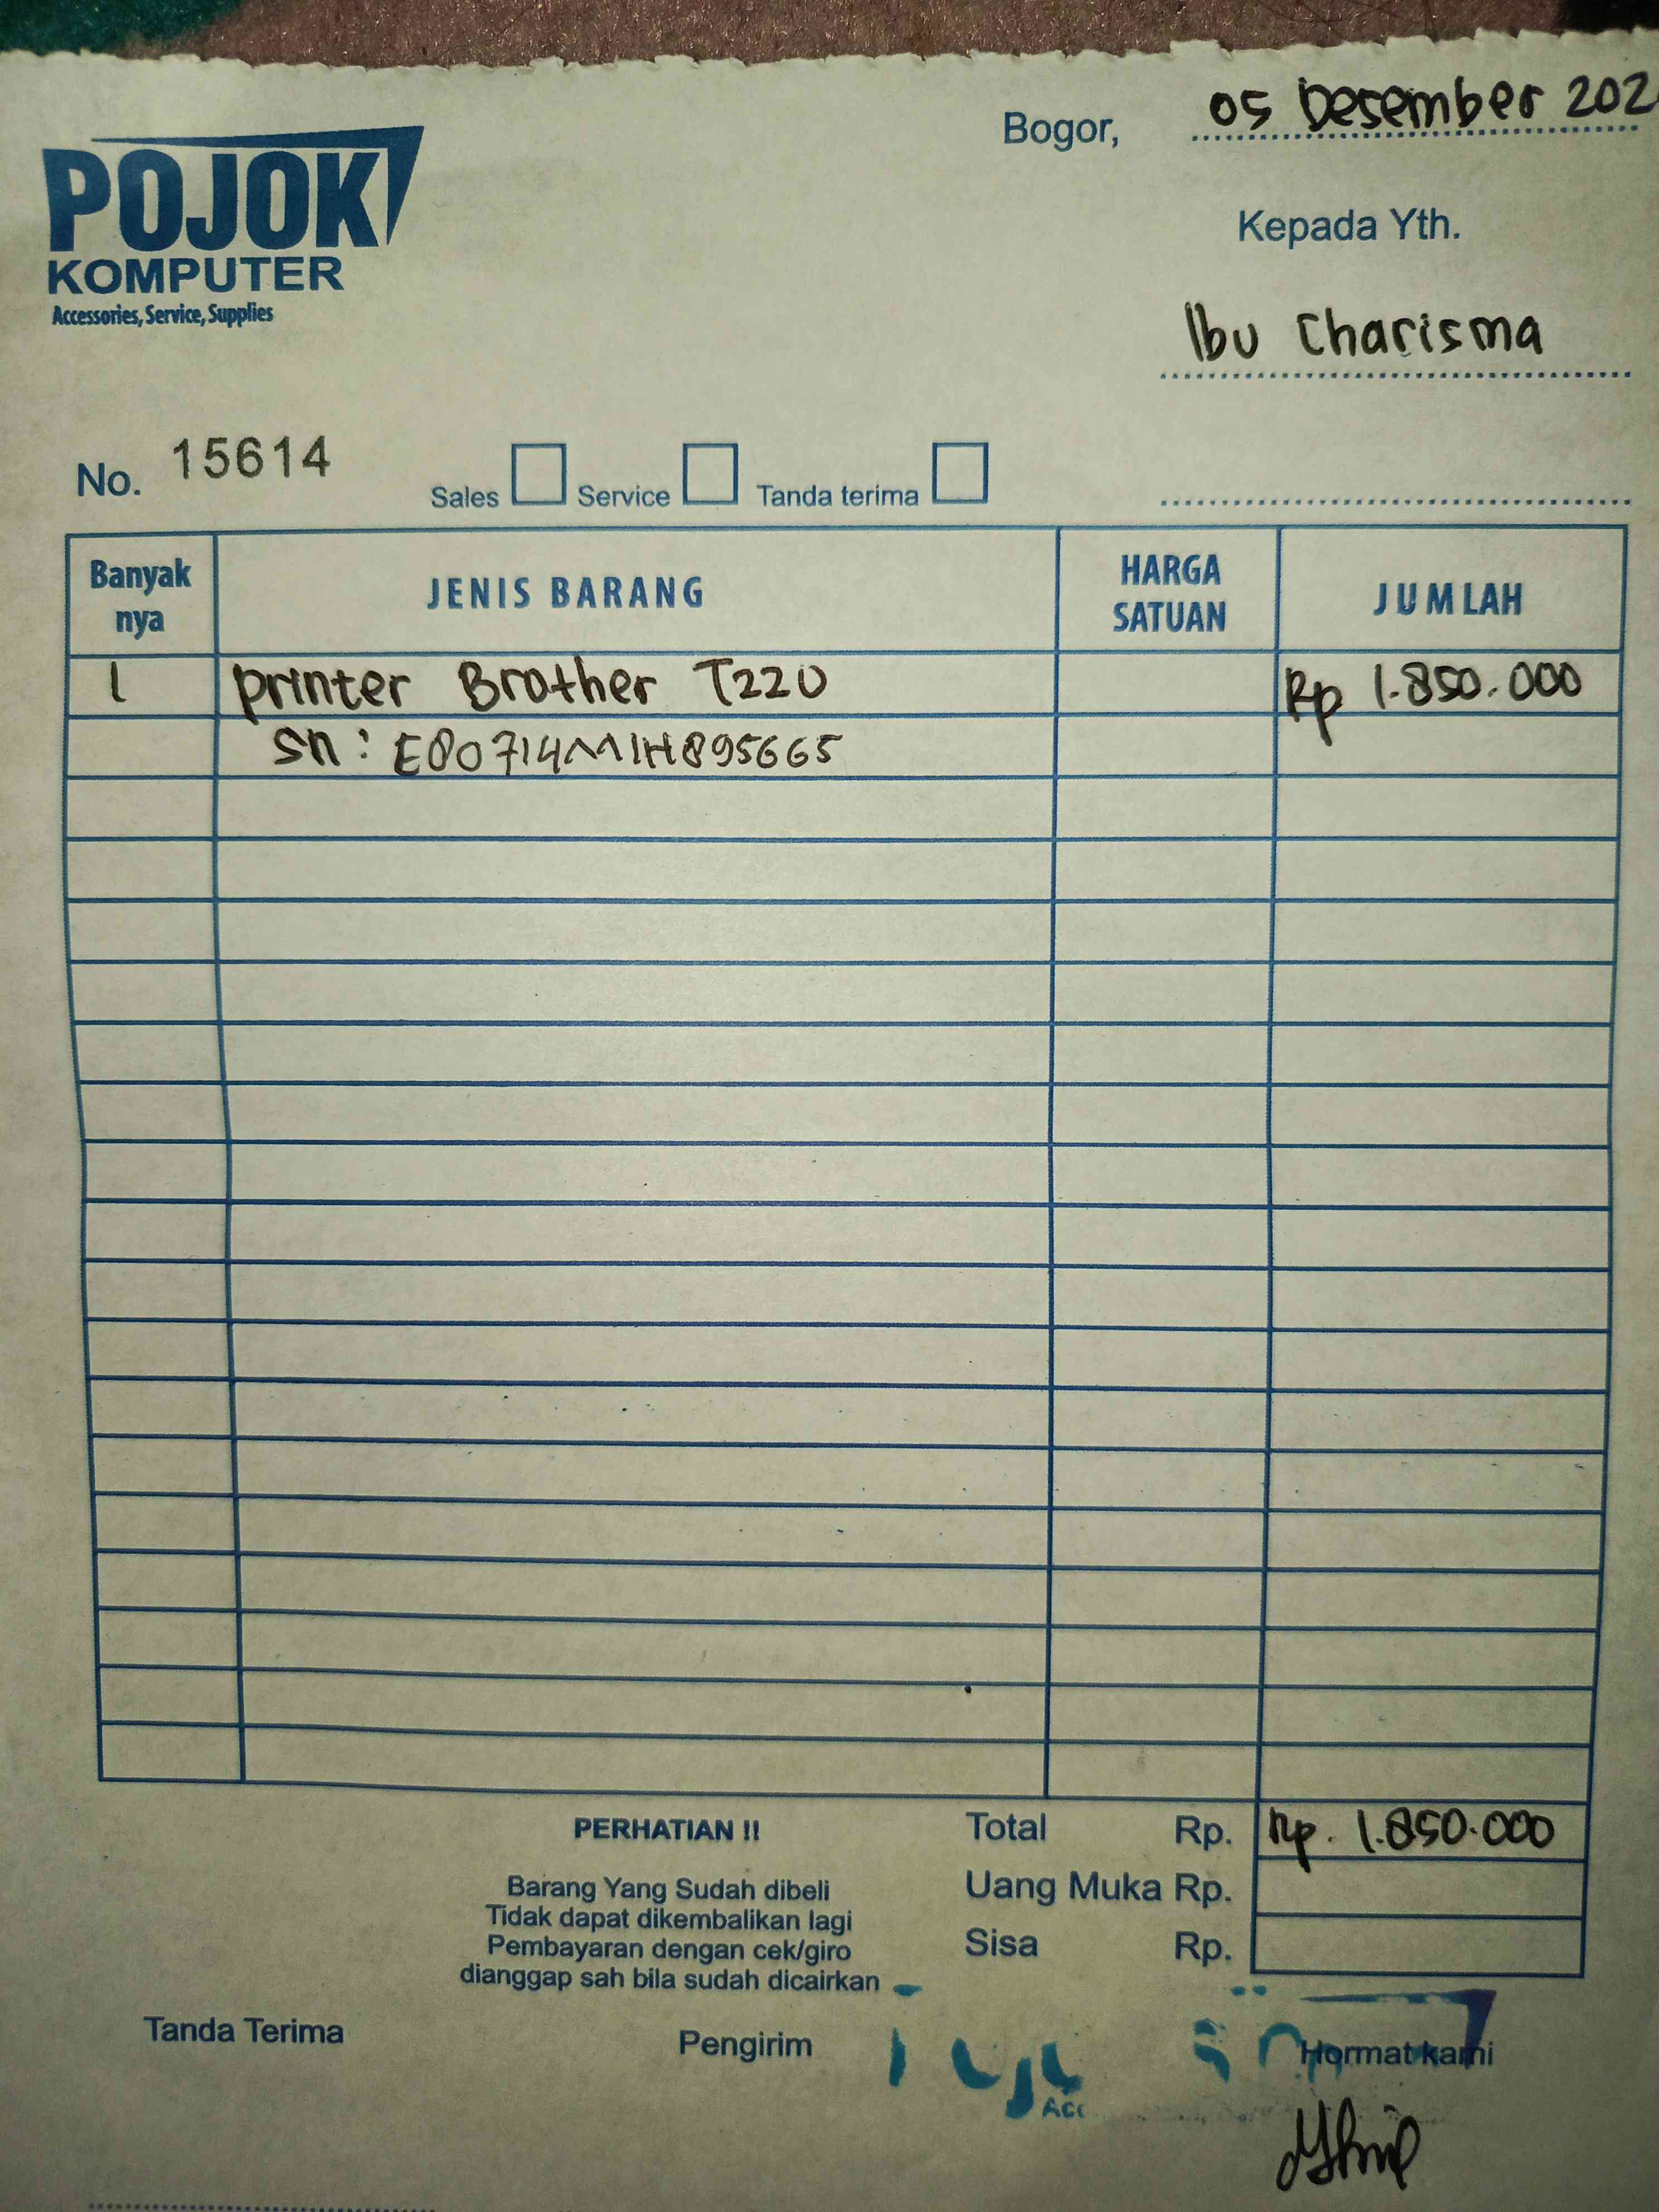 Bogor, 05 Desember 202
POJOK
KOMPUTER
Accessories, Service, Supplies
Kepada Yth.
Ibu Charisma
No. 15614
Sales Service Tanda terima
Banyak nya JENIS BARANG HARGA SATUAN JUMLAH
1 printer Brother T220 Rp 1.850.000
sn : E80714M1H895665
PERHATIAN !!
Barang Yang Sudah dibeli
Tidak dapat dikembalikan lagi
Pembayaran dengan cek/giro
dianggap sah bila sudah dicairkan
Total Rp. Rp. 1.850.000
Uang Muka Rp.
Sisa Rp.
Tanda Terima Pengirim Hormat kami